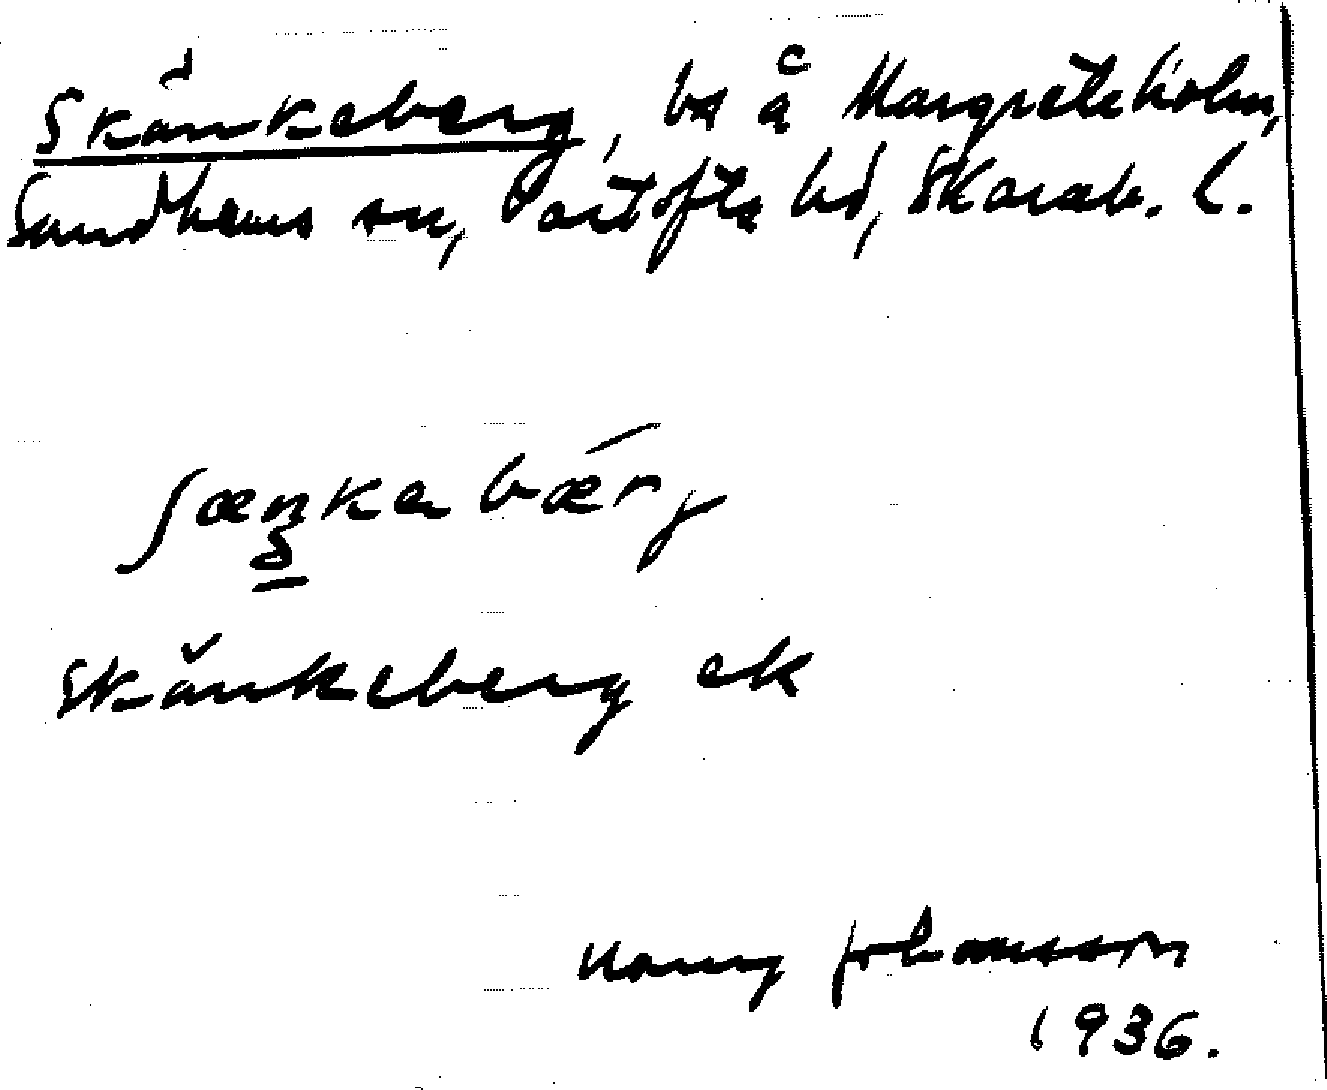 Skänkeberg, bg å Margreteholm,
Sandhems sn, Vartofta hd, Skarab. l.
ʃæŋkabærj
Skänkeberg ek
Harry Johansson
1936.